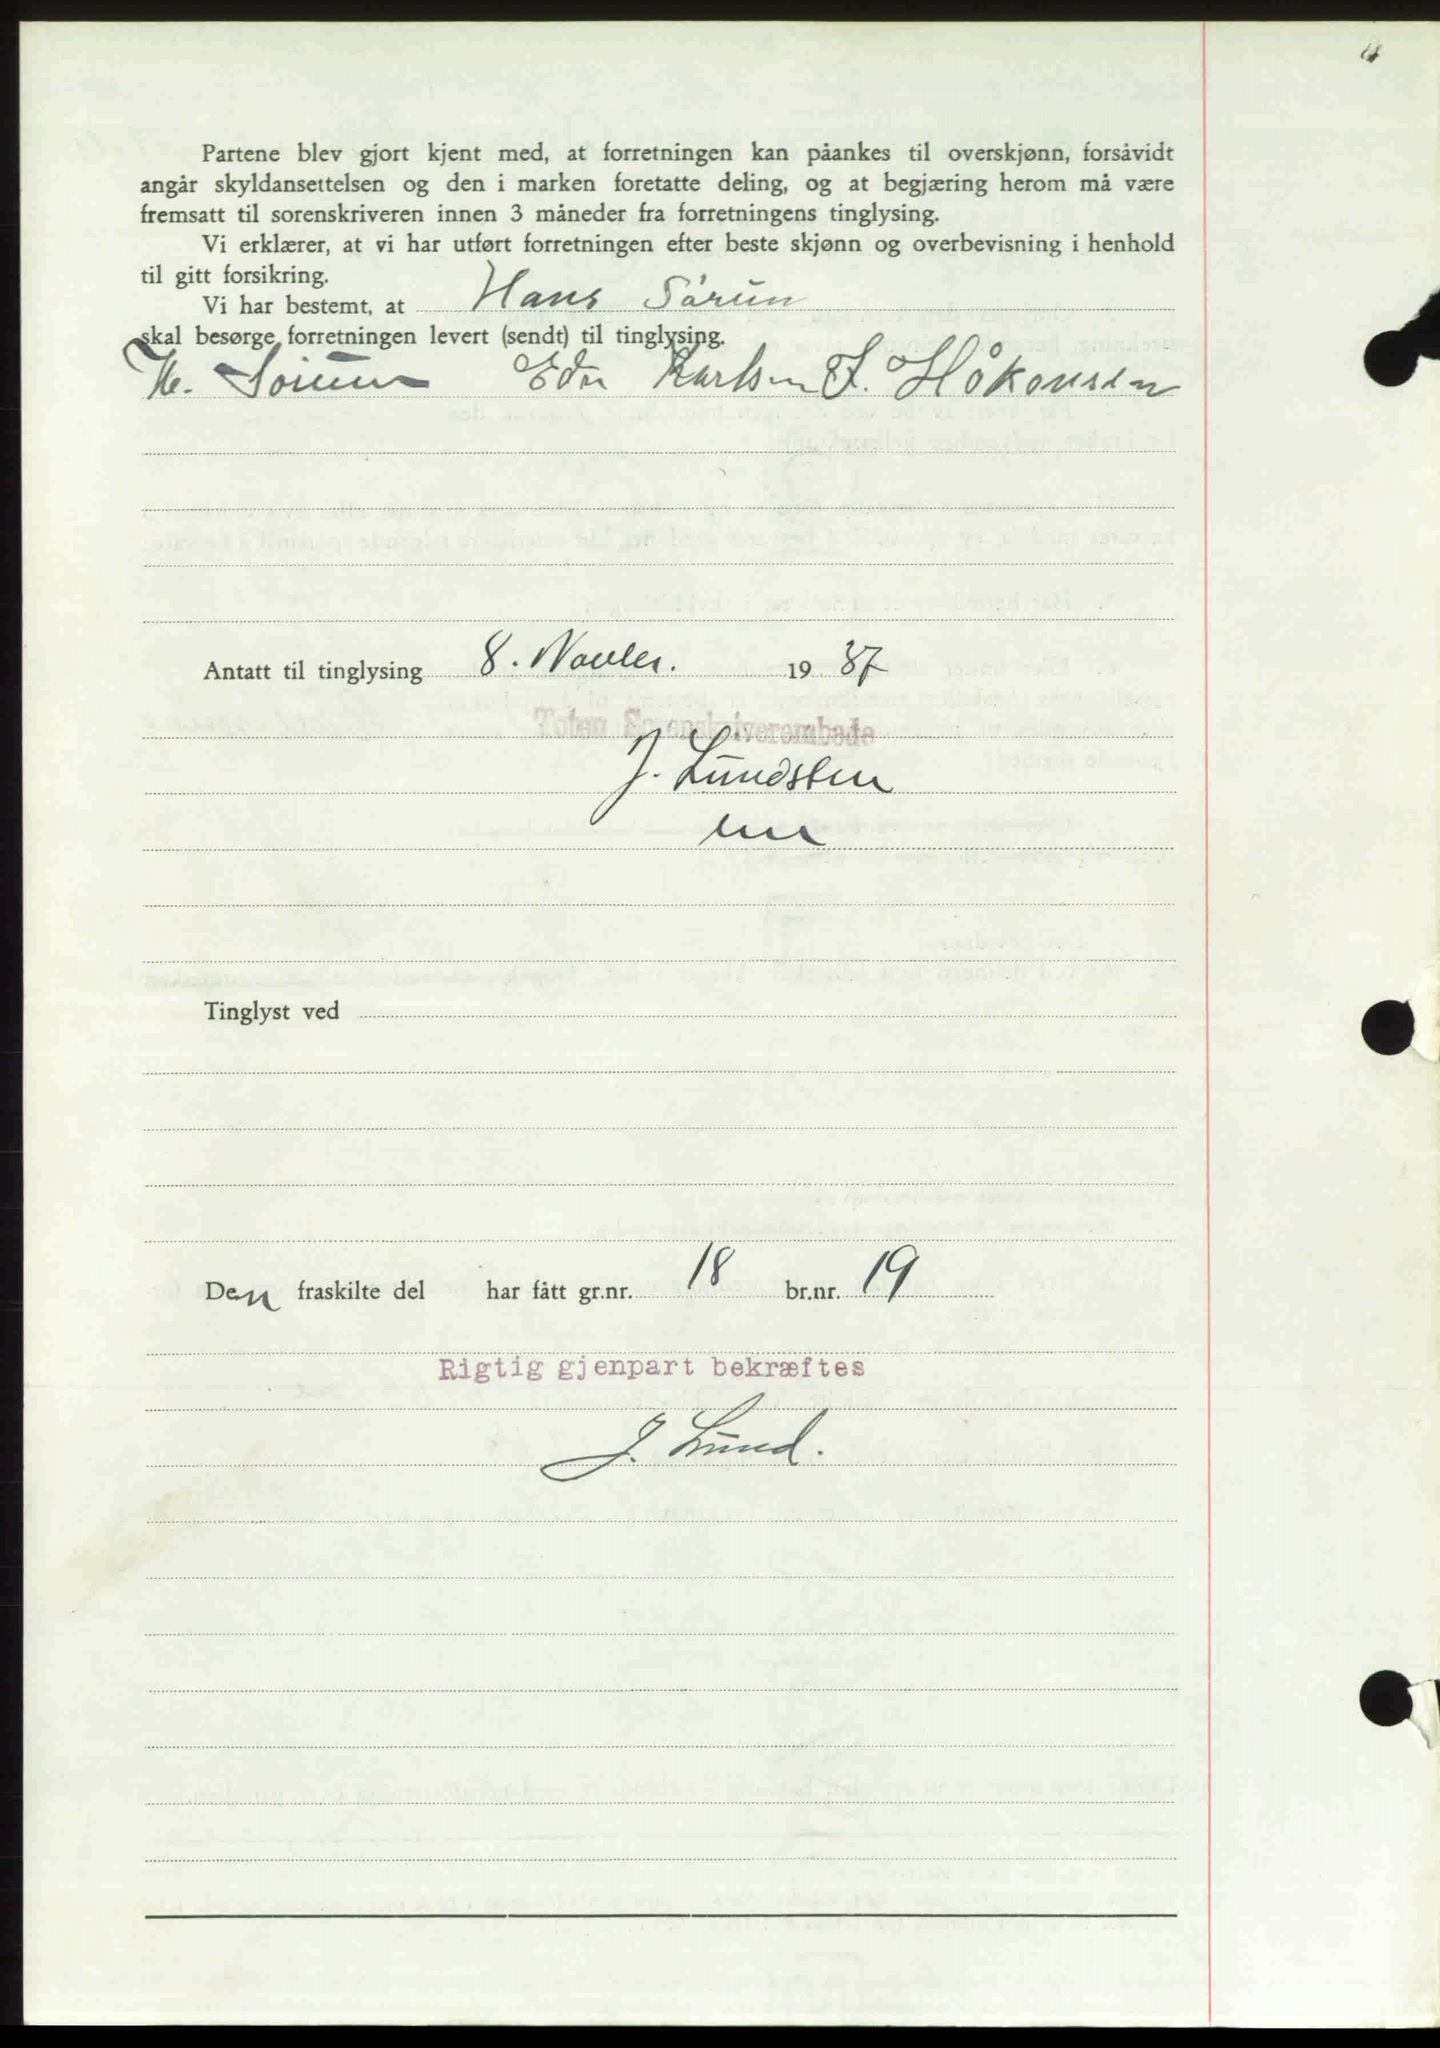 Partene blev gjort kjent med, at forretningen kan påankes til overskjønn, forsåvidt
angår skyldansettelsen og den i marken foretatte deling, og at begjæring herom må være
fremsatt til sorenskriveren innen 3 måneder fra forretningens tinglysing.
Vi erklærer, at vi har utført forretningen efter beste skjønn og overbevisning i henhold
til gitt forsikring.
Vi har bestemt, at Hans Sörum
skal besørge forretningen levert (sendt) til tinglysing.
H. Sörum Edv Karlsen J. Håkonsen
Antatt til tinglysing 8. Novbr. 1937
Toten Sorenskriverembede
J. Lundsten
Tinglyst ved
Den fraskilte del har fått gr.nr. 18 br.nr. 19
Rigtig gjenpart bekræftes
J. Lund.